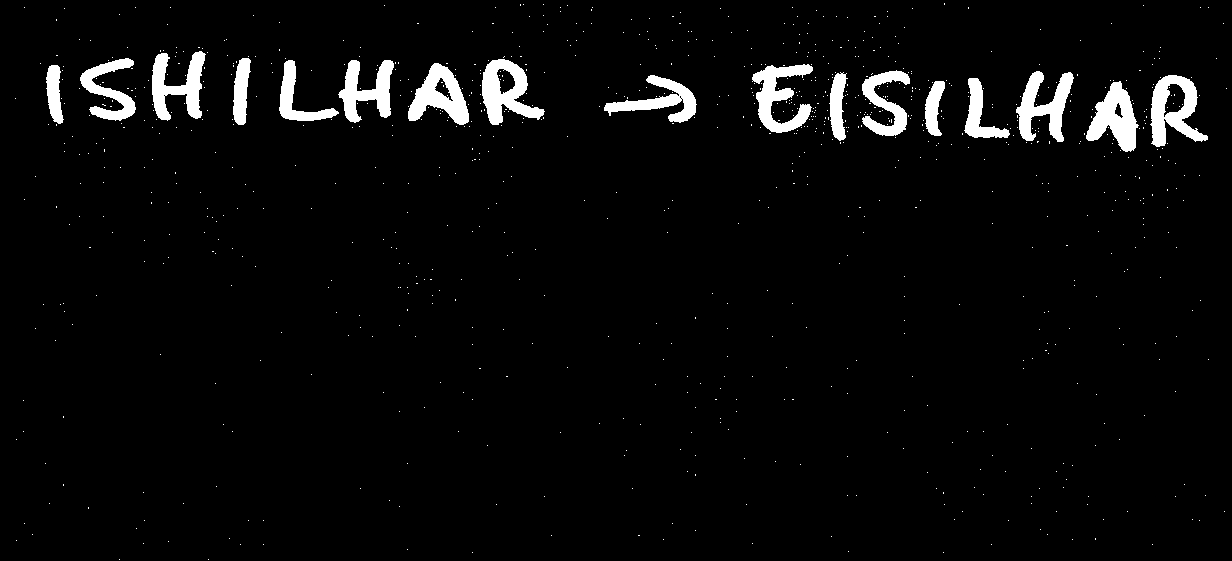 ISHILHAR → EISILHAR